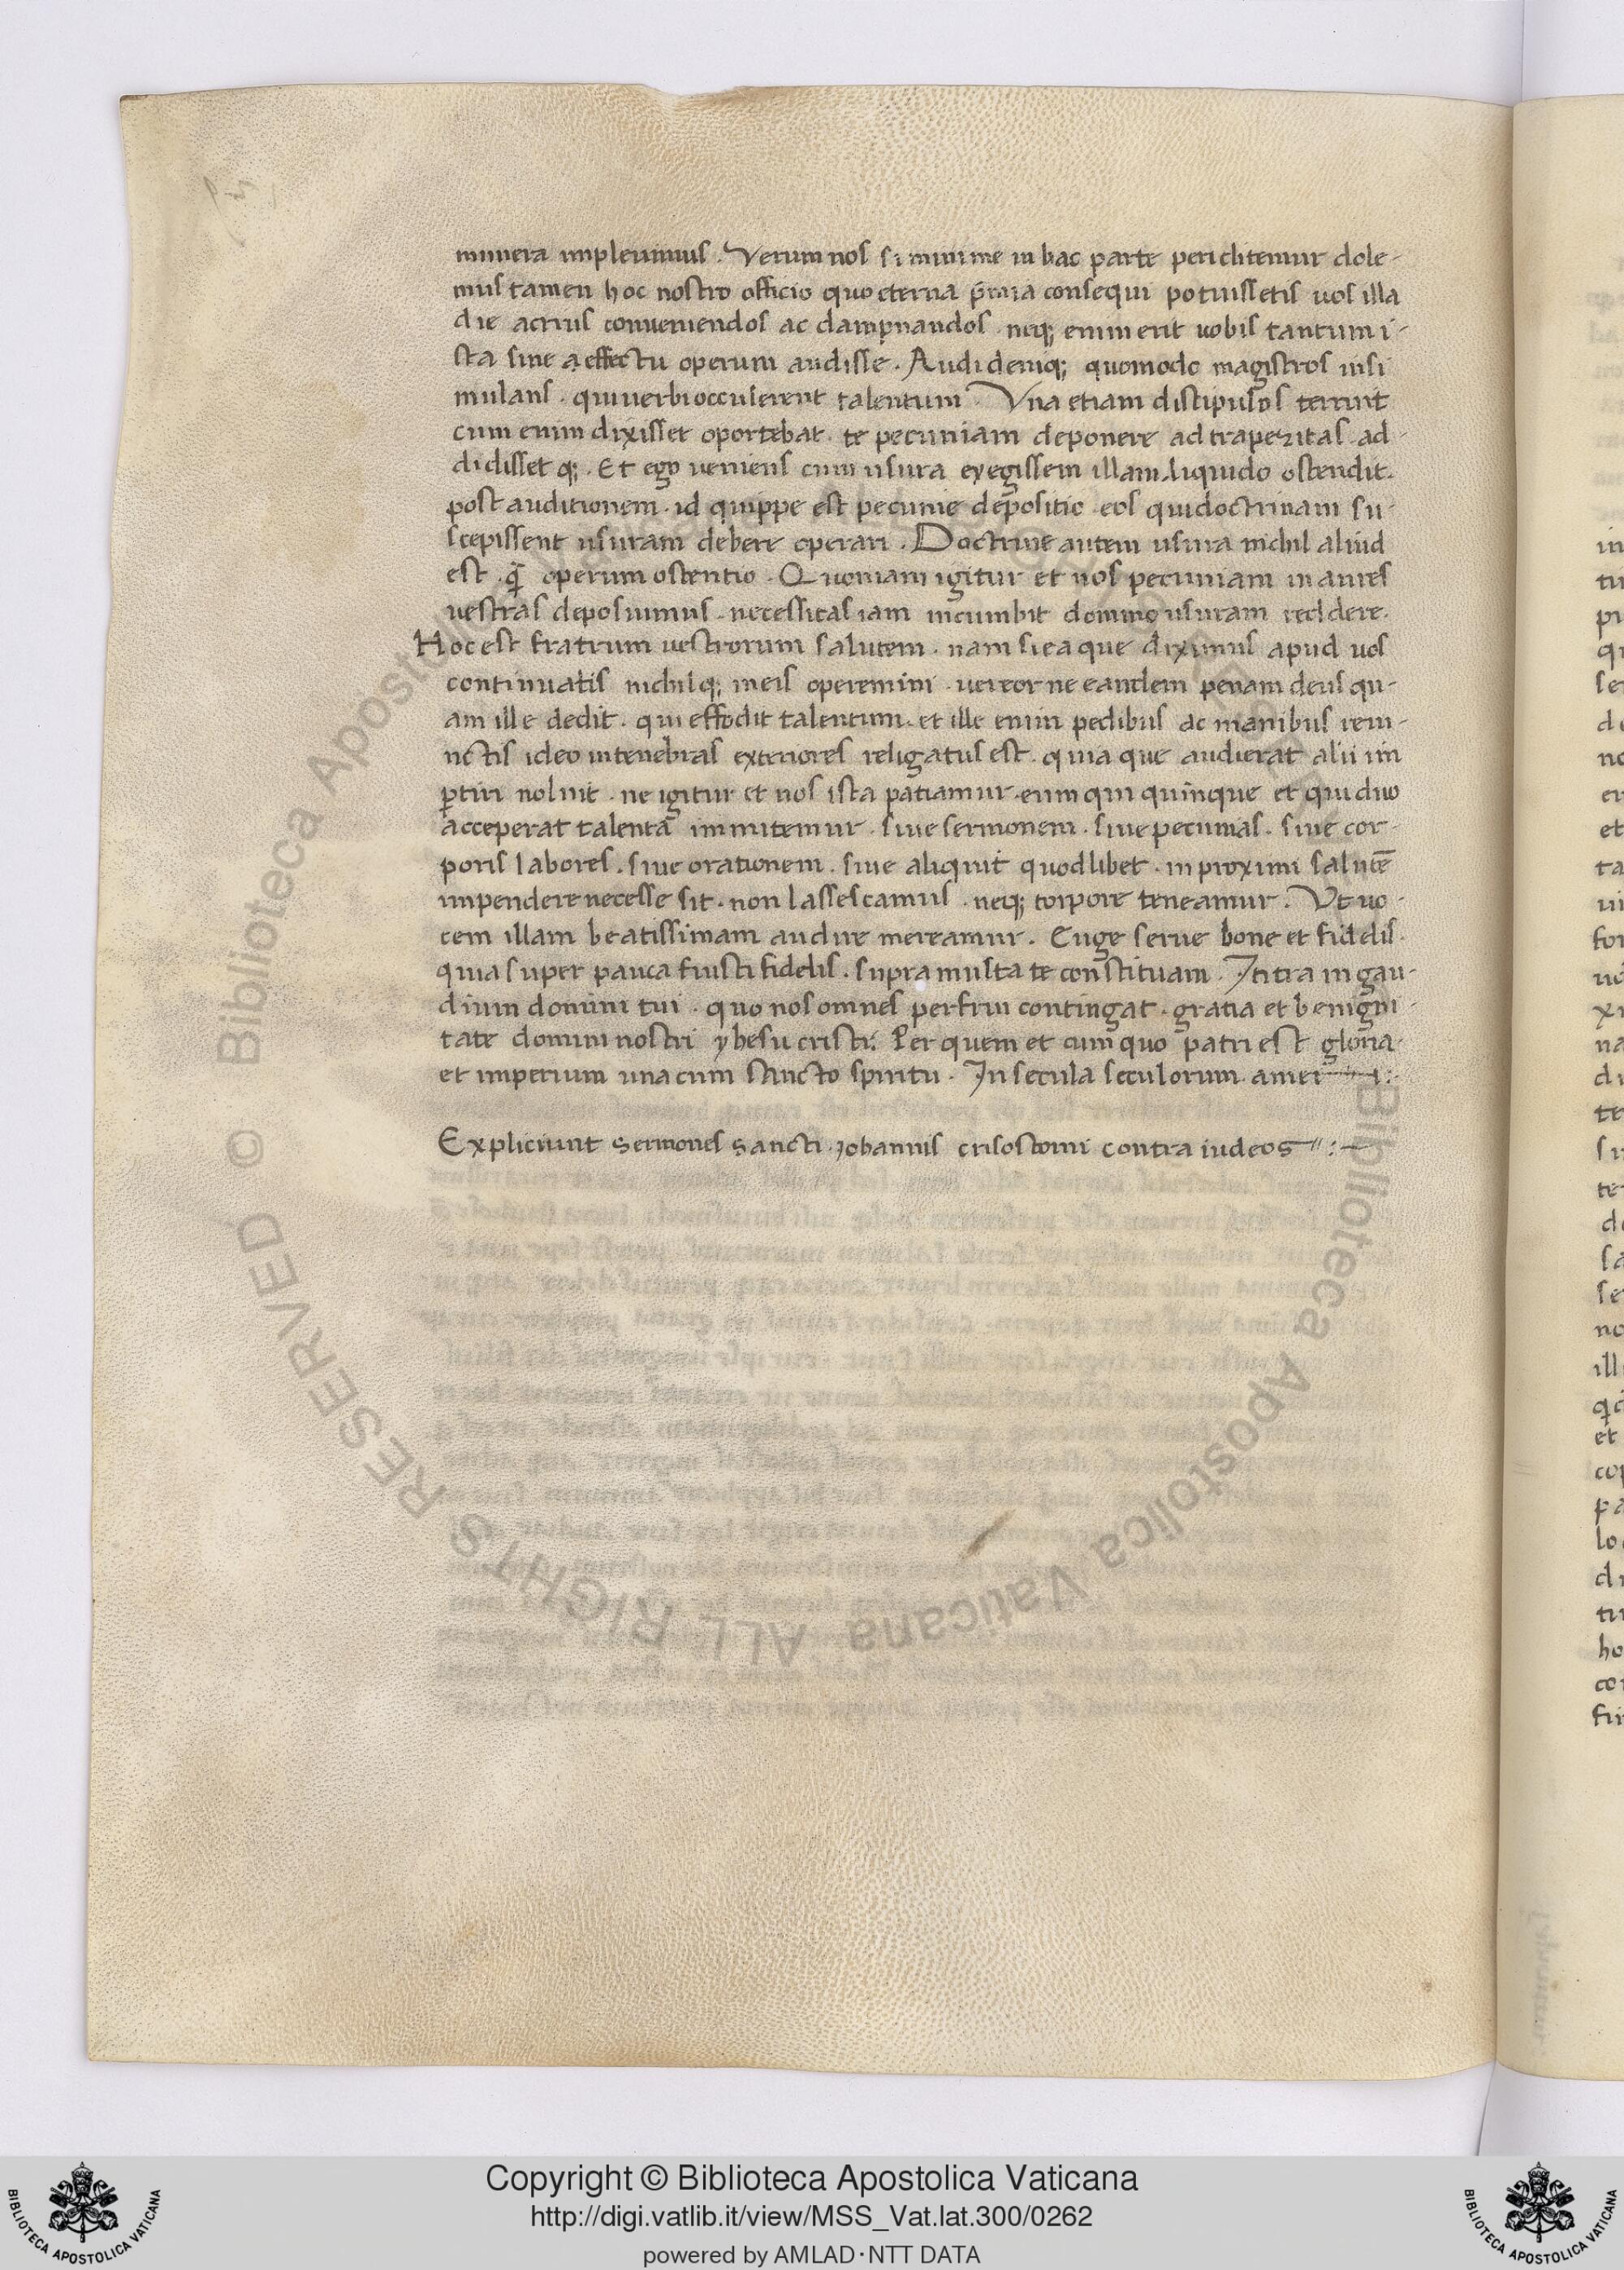 munera impleuimus. Verum nos si minime in hac parte periclitemur dole-
mus tamen hoc nostro officio quo eterna premia consequi potuissetis uos illa
die acrius conueniendos ac dampnandos. neq; enim erit uobis tantum i-
sta sine aeffectu operum audisse. Audi deniq; quomodo magistros insi
mulans. qui uerbi occulerent talentum. Vna etiam discipulos terruit
cum enim dixisset oportebat. te pecuniam deponere ad trapezitas. ad-
didisset q;. Et ego ueniens cum usura exegissem illam. liquido ostendit.
post auditionem. id quippe est pecunie depositio. eos qui doctrinam su-
scepissent usuram debere operari. Doctrine autem usura nichil aliud
est. q̃ operum ostentio. Quoniam igitur et nos pecuniam in aures
uestras deposuimus. necessitas iam incumbit domino usuram reddere.
Hoc est fratrum uestrorum salutem. nam si ea que diximus apud uos
continuatis nichilq; meis operemini. uereor ne eandem penam deus qu-
am ille dedit. qui effodit talentum. et ille enim pedibus ac manibus reui-
nctis ideo in tenebras exteriores religatus est. quia que audierat alii im
ꝑtiri noluit. ne igitur et nos ista patiamur. eum qui quinque et qui duo
acceperat talenta immitemur. siue sermonem. siue pecunias. siue cor-
poris labores. siue orationem. siue aliquit quodlibet. in proximi salutē
impendere necesse sit. non lassescamus. neq; torpore teneamur. Vt uo-
cem illam beatissimam audire mereamur. Euge serue bone et fidelis.
quia super pauca fuisti fidelis. supra multa te constituam. Intra in gau-
dium domini tui. quo nos omnes perfrui contingat. gratia et benigni-
tate domini nostri yhesu cristi. Per quem et cum quo patri est gloria.
et imperium una cum sancto spiritu. In secula seculorum. amen:-
Expliciunt sermones sancti. iohannis crisostomi contra iudeos :-
© Biblioteca Apostolica Vaticana ALL RIGHTS RESERVED
Copyright © Biblioteca Apostolica Vaticana
http://digi.vatlib.it/view/MSS_Vat.lat.300/0262
powered by AMLAD·NTT DATA
BIBLIOTECA APOSTOLICA VATICANA
BIBLIOTECA APOSTOLICA VATICANA